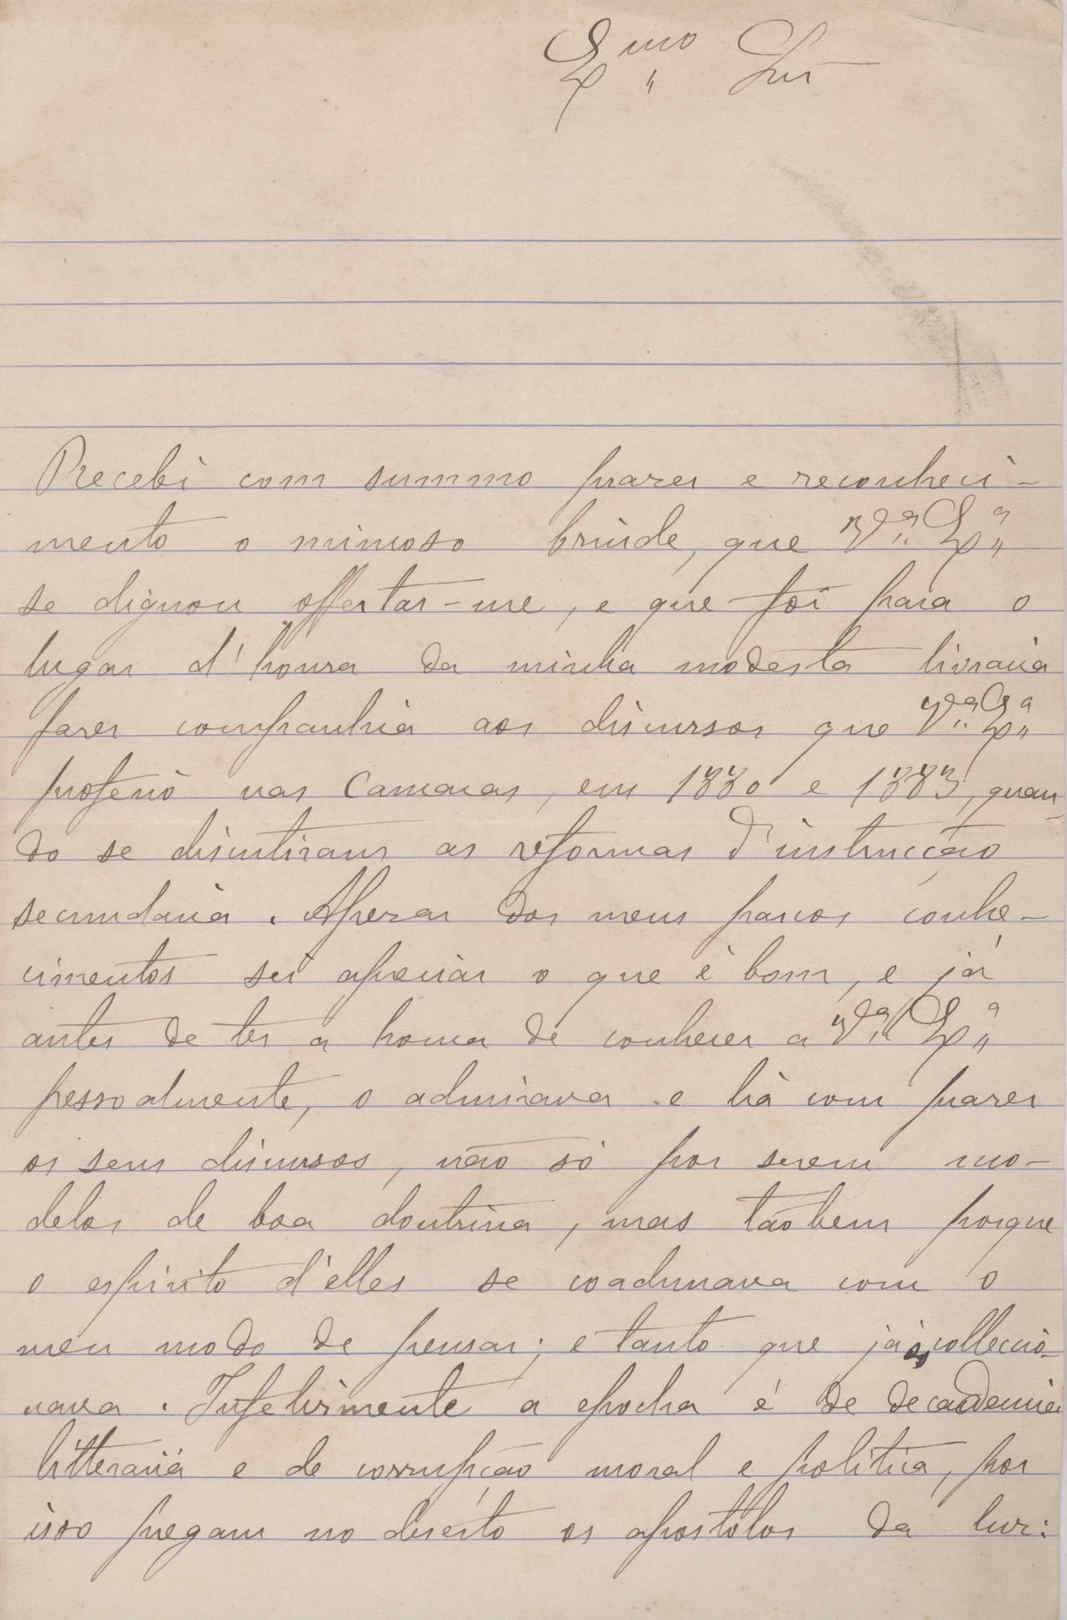 Ex.mo Snr
Recebi com summo prazer e reconheci-
mento o mimoso brinde, que V.ª Ex.ª
se dignou offertar-me, e que foi para o
lugar d'honra da minha modesta livraria
fazer companhia aos discursos que V.ª Ex.ª
proferiò nas Camaras, em 1880 e 1883, quan-
do se discutiram as reformas d'instrucção
secundaria. Apezar dos meus parcos conhe-
cimentos sei apreciar o que é bom, e já
antes de ter a honra de conhecer a V.ª Ex.ª
pessoalmente, o admirava e lia com prazer
os seus discursos, não só por serem mo-
delos de boa doutrina, mas tãobem porque
o espirito d'elles se coadunava com o
meu modo de pensar; e tanto que já os colleccio-
nava. Infelizmente a epocha é de decadencia
litteraria e de corrupção moral e politica, por
isso pregam no deserto os apostolos da luz: